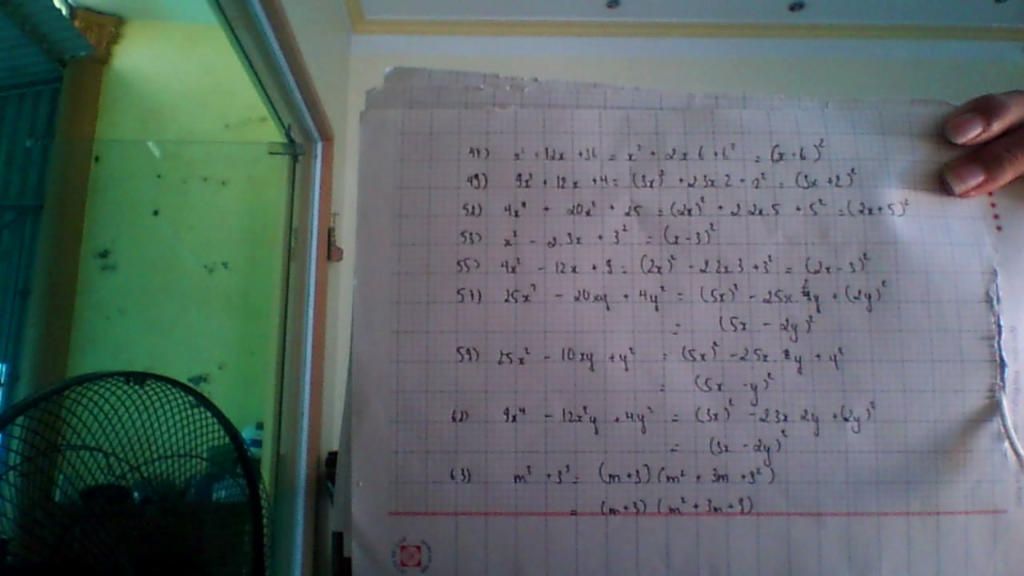 49) x² + 12x + 36 = x² + 2x6 + 6² = (x+6)²
49) 9x² + 12x + 4 = (3x)² + 23x2 + 2² = (3x+2)²
52) 4x⁴ + 20x² + 25 = (2x)² + 2 2x.5 + 5² = (2x+5)²
53) x² - 2.3x + 3² = (x-3)²
55) 4x² - 12x + 9 = (2x)² - 22x3 + 3² = (2x-3)²
57) 25x² - 20xy + 4y² = (5x)² - 25x.2y + (2y)²
= (5x - 2y)²
59) 25x² - 10xy + y² = (5x)² - 25x.y + y²
= (5x - y)²
62) 9x⁴ - 12x²y + 4y² = (3x)² - 23x 2y + (2y)²
= (3x - 2y)²
63) m³ + 3³ = (m+3) (m² + 3m + 3²)
= (m+3) (m² + 3m + 9)